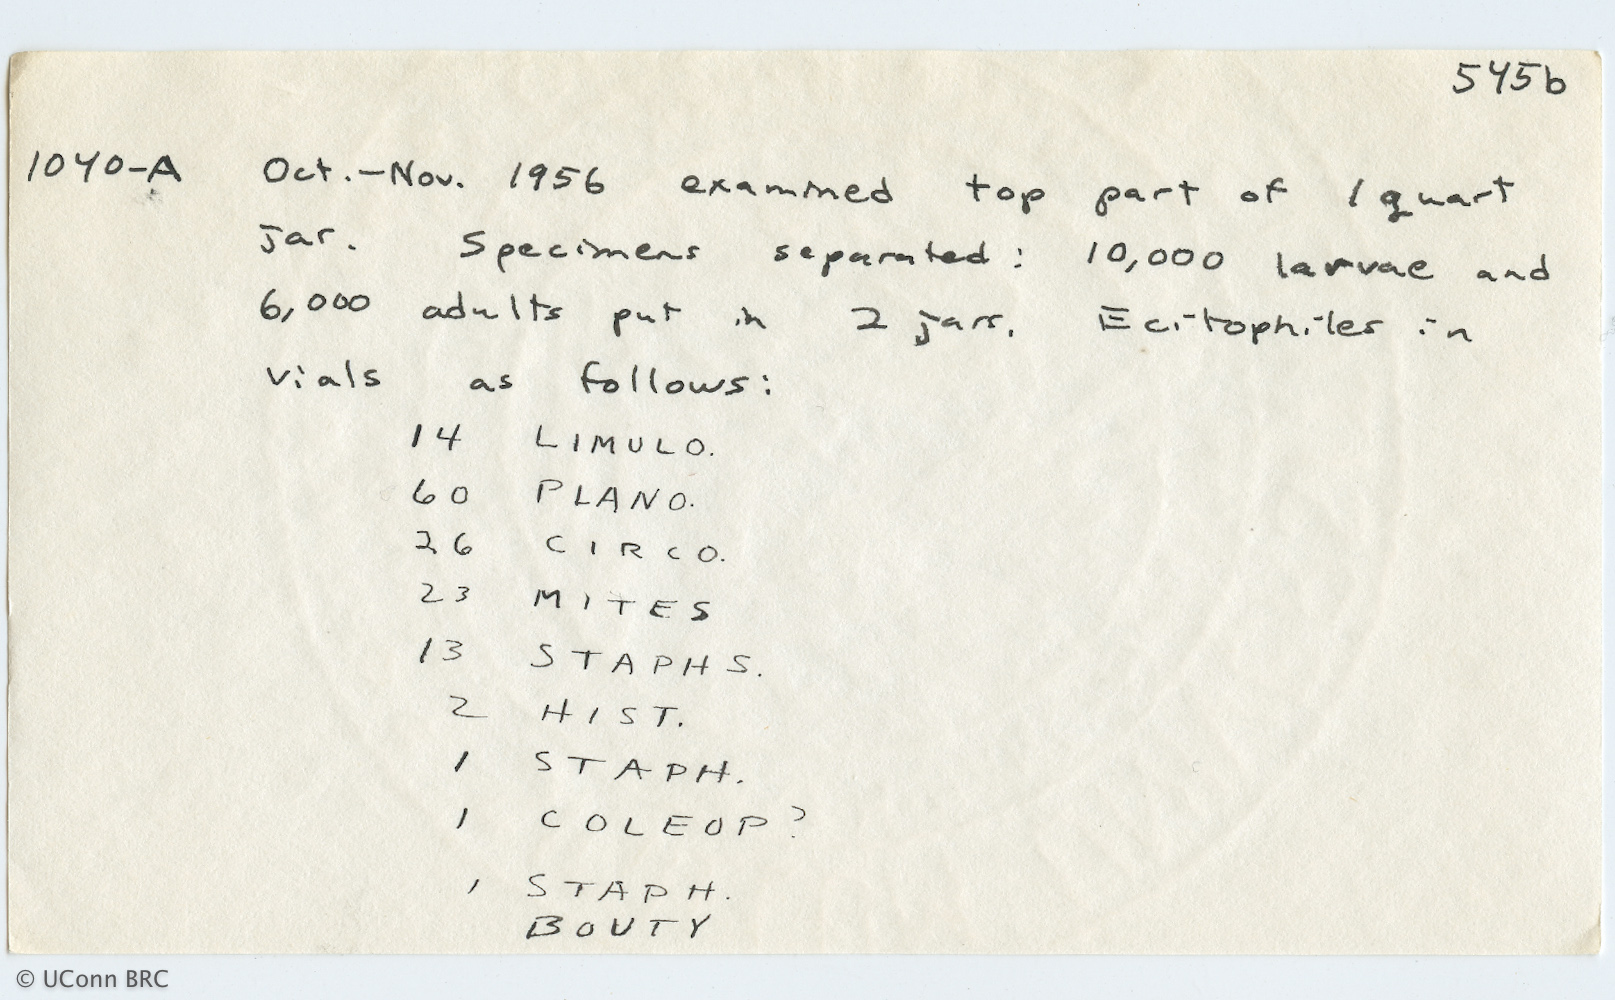 545b
1040-A Oct.-Nov. 1956 examined top part of 1 quart
jar. Specimens separated: 10,000 larvae and
6,000 adults put in 2 jars. Ecitophiles in
vials as follows:
14 LIMULO.
60 PLANO.
26 CIRCO.
23 MITES
13 STAPHS.
2 HIST.
1 STAPH.
1 COLEOP?
1 STAPH.
BOUTY
© UConn BRC